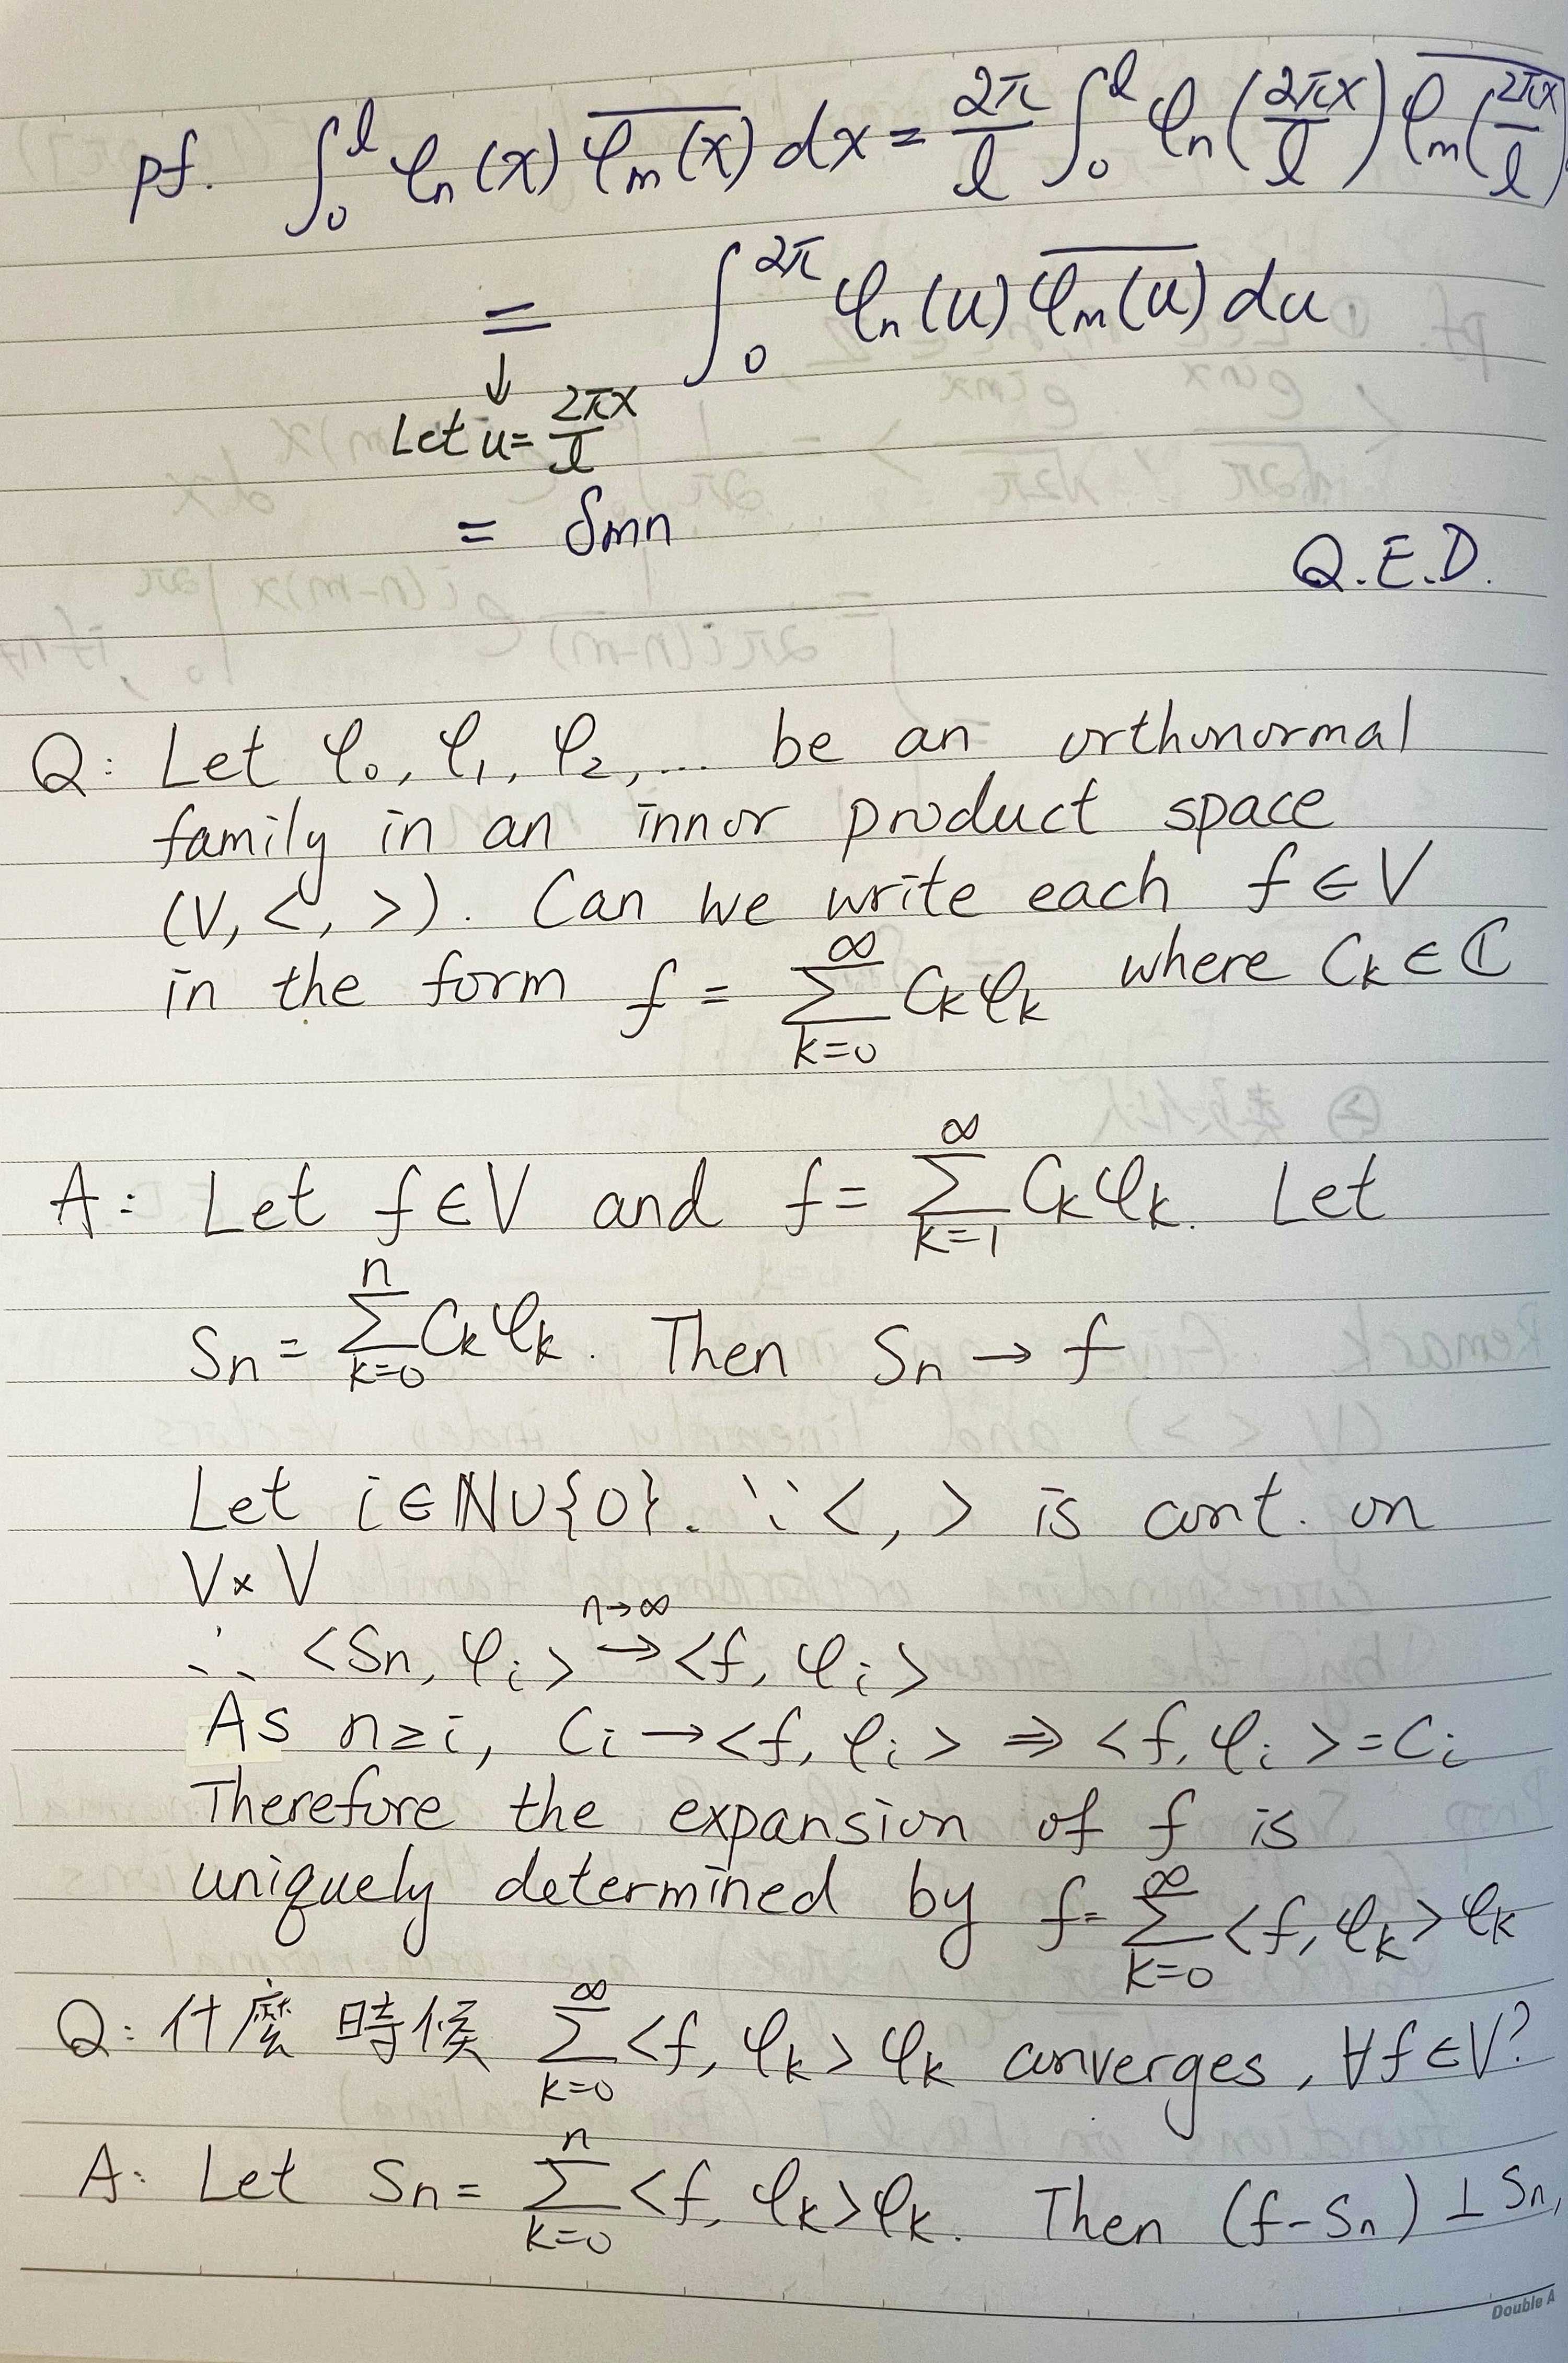 pf. ∫₀^ℓ φₙ(x) \overline{φₘ(x)} dx = 2π/ℓ ∫₀^ℓ φₙ(2πx/ℓ) \overline{φₘ(2πx/ℓ)}
= ∫₀^{2π} φₙ(u) \overline{φₘ(u)} du
↓
Let u = 2πx/ℓ
= δmn
Q.E.D.
Q: Let φ₀, φ₁, φ₂, ... be an orthonormal
family in an innor product space
(V, <, >). Can we write each f ∈ V
in the form f = ∑_{k=0}^{∞} Ckφk where Ck ∈ ℂ
A: Let f ∈ V and f = ∑_{k=1}^{∞} Ckφk. Let
Sn = ∑_{k=0}^{n} Ckφk. Then Sn → f
Let i ∈ ℕ∪{0}. ∵ <, > is cont. on
V × V
∴ <Sn, φi> →^{n→∞} <f, φi>
As n ≥ i, Ci → <f, φi> ⇒ <f, φi> = Ci
Therefore the expansion of f is
uniquely determined by f = ∑_{k=0}^{∞} <f, φk> φk
Q: 什麼時候 ∑_{k=0}^{∞} <f, φk> φk converges, ∀f ∈ V?
A: Let Sn = ∑_{k=0}^{n} <f, φk>φk. Then (f-Sn) ⊥ Sn,
Double A